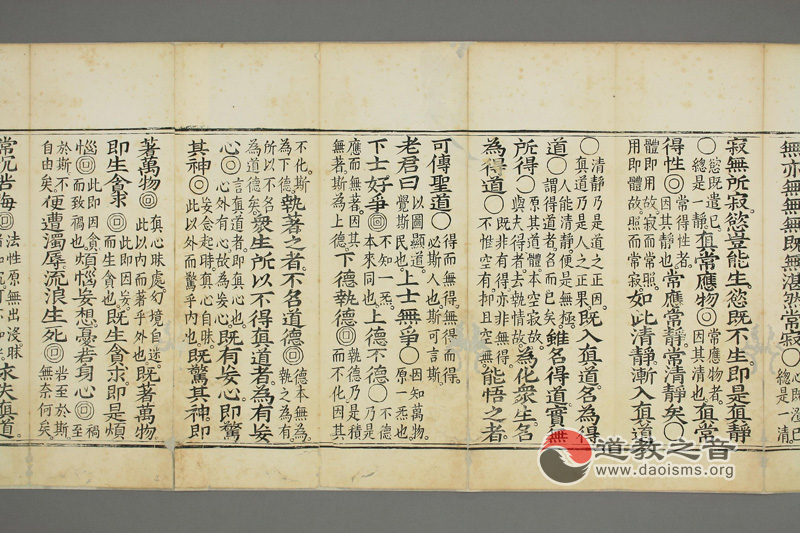 無亦無無無既無湛然常◯心既澄已總是一清
寂無所寂慾豈能生慾既不生即是真靜
◯慾既遣已。總是一靜。真常應物◯常應物者。因其清也。真常
得性◯常得性者。因其靜也。常應常靜常清靜矣◯
體即用故。寂而常照。用即體故。照而常寂。如此清靜漸入真道
◯清靜乃是道之正因。真道乃是人之正果。既入真道名為得
道◯人能清靜便是無極。謂得道者。名而已矣。雖名得道實無
所得◯原其道體。本空寂故。與夫得者。去執情故。為化衆生名
為得道◯既非有得。亦非無得。不惟空有。抑且空無。能悟之者
可傳聖道◯得而無得。無得而得。必斯人也。斯可言傳。
老君曰◯以圖顯道。覺斯民也。上士無爭◯因知萬物。原一炁也。
下士好爭◎不知一炁。本來同也。上德不德◯不德乃是
應而無著。因其無著。斯為上德。下德執德◎執德乃是積而不化。因其
不化。斯為下德。執著之者。不名道德◎德本無為。執之為有。
所以不名為道德矣。衆生所以不得真道者。為有妄
心◎言真道者。即真心也。心外有心。故為妄心。既有妄心。即驚
其神◎妄念起時。真心自昧。此以外而驚乎內也。既驚其神。即
著萬物◎真心昧處。幻境自迷。此以內而著乎外也。既著萬物
即生貪求◎此即因妄。而生貪也。既生貪求。即是煩
惱◎此即因貪。而致禍也。煩惱妄想。憂苦身心◎禍至
於斯。不自由矣。便遭濁辱。流浪生死◎苦至於斯。無奈何矣。
常沉苦海◎法性原無出沒昧永失真道
道教之音
www.daoisms.org